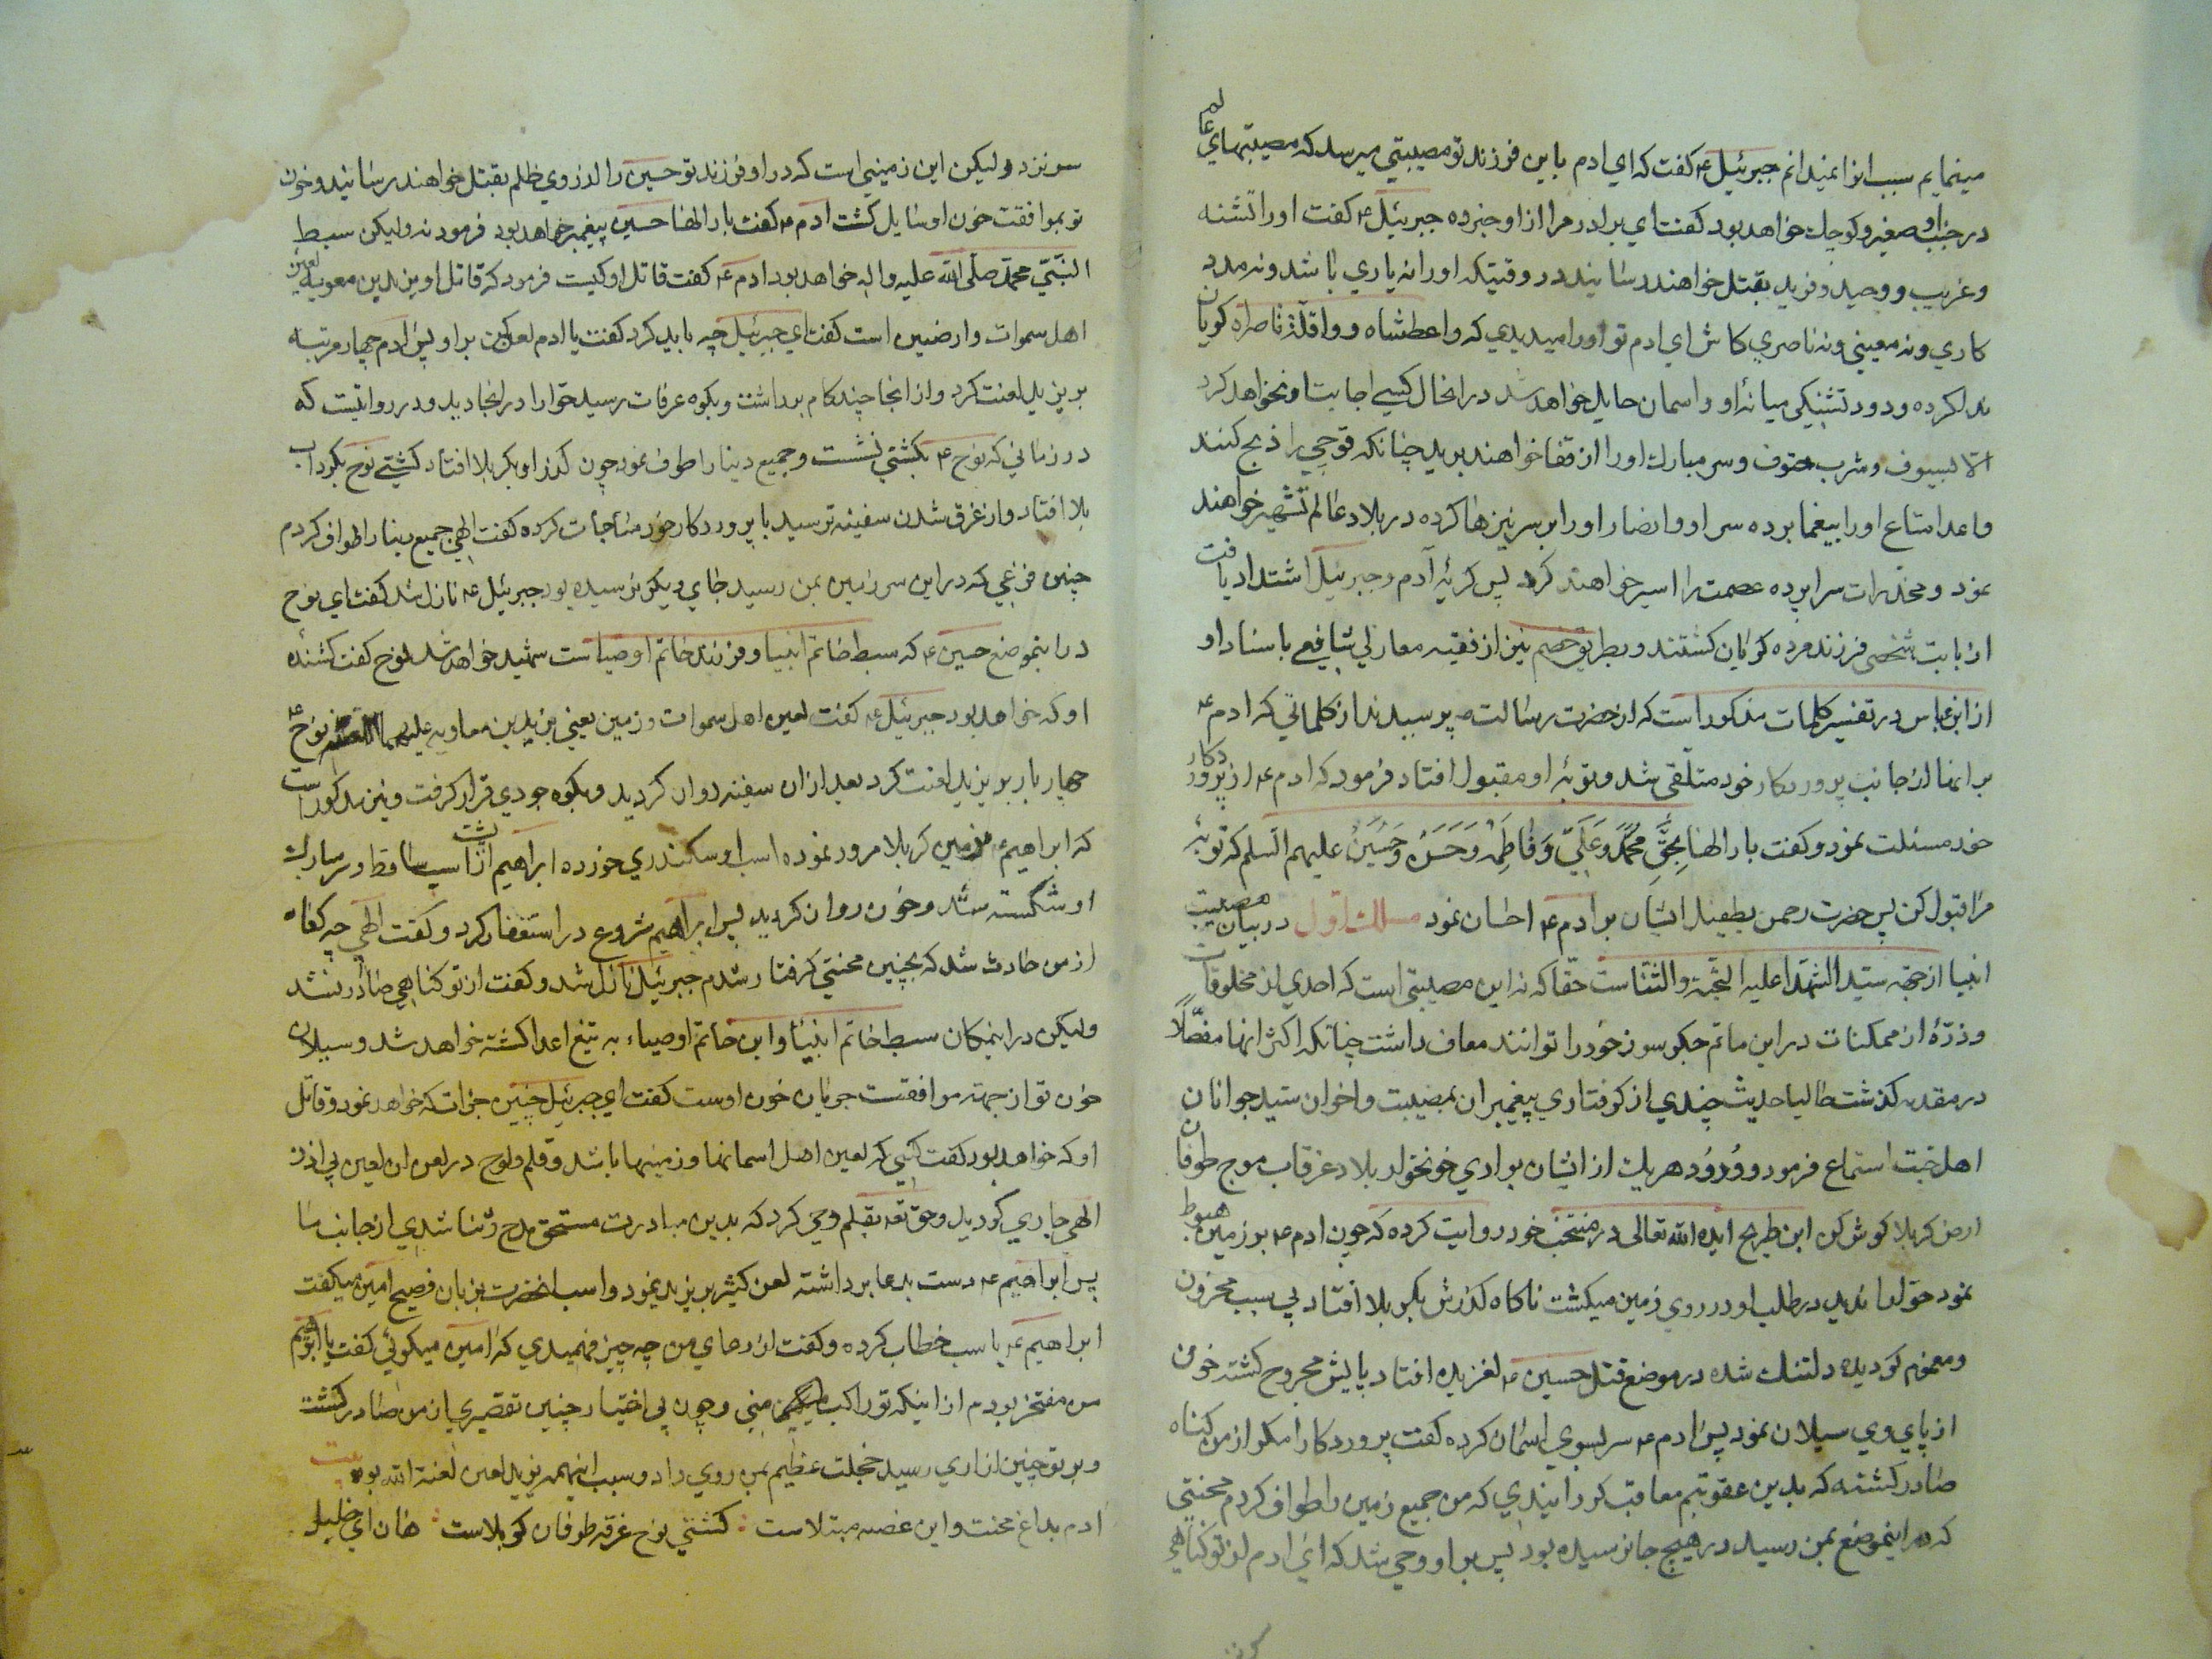 مینمایم سبب انرا نمیدانم جبرئیل ۴ کفت که ای ادم باین فرزند تو مصیبتی میرسد که مصیبتهای عالم
در جنب او صغیر و کوچك خواهد بود کفت ای برادر مرا از او خبر ده جبرئیل ۴ کفت اورا تشنه
و غریب و وحید و فرید بقتل خواهند رسانید در وقتیکه اورا نه یاری باشد و نه مدد
کاری و نه معینی و نه ناصری کاش ای ادم تو اورا میدیدی که واعطشاه و واقلة ناصراه کویان
بلند کرده و دود تشنکی میانهٔ او و اسمان حایل خواهد شد در انحال کسی اجابت او نخواهد کرد
الا بسیوف و شرب حتوف و سر مبارك اورا از قفا خواهند برید چنانکه قوچی را ذبح کنند
و اعدا متاع اورا بیغما برده سر او و انصار اورا بر سر نیزها کرده در بلاد عالم تشهیر خواهند
نمود و مخدرات سراپرده عصمت را اسیر خواهند کرد پس کریهٔ آدم و جبرئیل اشتداد یافت
از بابت شخصی فرزند مرده کریان کشتند و بطریق خصم نیز از فقیه مغازلی شافعی باسناد او
از ابن عباس در تفسیر کلمات مذکور است که از حضرت رسالت ص پرسیدند از کلماتی که ادم ۴
بر انها از جانب پروردکار خود متلقی شد و توبهٔ او مقبول افتاد فرمود که ادم ۴ از پروردکار
خود مسئلت نمود و کفت بار الهنا بِحَقِّ مُحَمَّدٍ وَ عَلِیٍّ وَ فاطِمَةَ وَ حَسَنٍ وَ حُسَیْنٍ علیهم السلم که توبهٔ
مرا قبول کن پس حضرت رحمن بطفیل ایشان بر ادم ۴ احسان نمود مسلك اول در بیان مصیبت
انبیا از جهة سید الشهدا علیه التحیة و الثناست حقا که نه این مصیبتی است که احدی از مخلوقات
و ذرهٔ از ممکنات در این ماتم جکر سوز خود را توانند معاف داشت چنانکه اکثر انها مفصلًا
در مقدمه کذشت حالیا حدیث چندی از کرفتاری پیغمبران بمصیبت و اخوان سید جوانان
اهل جنت استماع فرمود و ورود هریك از ایشان بوادی خونخوار بلا و غرقاب موج طوفان
ارض کربلا کوش کن ابن طریح ایده الله تعالی در منتخب خود روایت کرده که چون ادم ۴ بر زمین هبوط
نمود حوا را ندید در طلب او در روی زمین میکشت ناکاه کذرش بکربلا افتاد بی سبب محزون
و مغموم کردیده دلتنك شده در موضع قتل حسین ۴ لغزیده افتاد پایش مجروح کشته خون
از پای وی سیلان نمود پس ادم ۴ سر بسوی اسمان کرده کفت پروردکارا مکر از من کناه
صادر کشته که بدین عقوبتم معاقب کردانیدی که من جمیع زمین را طواف کردم محنتی
که در اینموضع بمن رسید در هیچ جا نرسیده بود پس بر او وحی شد که ای ادم از تو کناهی
سر نزد و لیکن این زمینی است که در او فرزند تو حسین را از روی ظلم بقتل خواهند رسانید و خون
تو بموافقت خون او سایل کشت ادم ۴ کفت بار الهنا حسین پیغمبر خواهد بود فرمود نه و لیکن سبط
النبی محمد صلی الله علیه و اله خواهد بود ادم ۴ کفت قاتل او کیست فرمود که قاتل او یزید بن معویه لعین
اهل سموات و ارضین است کفت ای جبرئیل چه باید کرد کفت یا ادم لعن کن بر او پس ادم چهار مرتبه
بر یزید لعنت کرد و از انجا چند کام برداشت و بکوه عرفات رسید حوا را در انجا دید و در روایتست که
در زمانی که نوح ۴ بکشتی نشست و جمیع دنیا را طوف نمود چون کذر او بکربلا افتاد کشتی نوح بکرداب
بلا افتاد و از غرق شدن سفینه ترسید با پروردکار خود مناجات کرده کفت الهی جمیع دنیا را طواف کردم
چنین فزعی که در این سرزمین بمن رسید جای دیکر نرسیده بود جبرئیل ۴ نازل شد کفت ای نوح
در اینموضع حسین ۴ که سبط خاتم انبیا و فرزند خاتم اوصیاست شهید خواهد شد نوح کفت کشندهٔ
او که خواهد بود جبرئیل ۴ کفت لعین اهل سموات و زمین یعنی یزید بن معاویه علیهما نوح ۴
چهار بار بر یزید لعنت کرد بعد از ان سفینه روان کردید و بکوه جودی قرار کرفت و نیز مذکور است
که ابراهیم ۴ بزمین کربلا مرور نموده اسب او سکندری خورده ابراهیم از پشت اسب ساقط و سر مبارك
او شکسته شد و خون روان کردید پس ابراهیم شروع در استغفار کرد و کفت الهی چه کناه
از من حادث شد که بچنین محنتی کرفتار شدم جبرئیل نازل شد و کفت از تو کناهی صادر نشد
و لیکن در اینمکان سبط خاتم انبیا و ابن خاتم اوصیاء به تیغ اعدا کشته خواهد شد و سیلان
خون تو از جهة موافقت جریان خون اوست کفت ای جبرئیل چنین جرات که خواهد نمود و قاتل
او که خواهد بود کفت کسی که لعین اهل اسمانها و زمینها باشد و قلم و لوح در لعن ان لعین بی اذن
الهی جاری کردید و حق تعالی بقلم وحی کرد که بدین مبادرت مستحق مدح و ثنا شدی از جانب ما
پس ابراهیم ۴ دست بدعا برداشته لعن کثیر بر یزید نمود و اسب انحضرت بزبان فصیح امین میکفت
ابراهیم ۴ باسب خطاب کرده و کفت از دعای من چه چیز فهمیدی که امین میکوئی کفت یا ابراهیم
من مفتخر بودم از اینکه تو راکب منی و چون بی اختیار چنین تقصیری از من صادر کشت
و بر تو چنین ازاری رسید خجلت عظیم بمن روی داد و سبب اینهمه یزید لعین لعنة الله بود
ادم بداغ محنت و این غصه مبتلاست : کشتی نوح غرقه طوفان کربلاست : هان ای خلیل